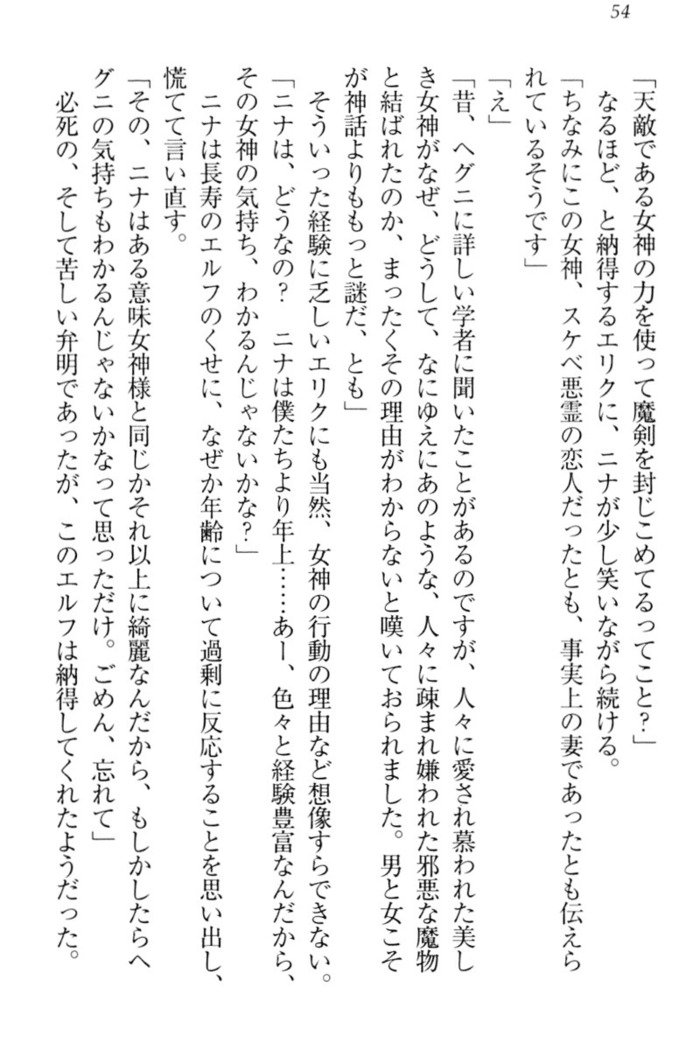 54
「天敵である女神の力を使って魔剣を封じこめてるってこと？」
なるほど、と納得するエリクに、ニナが少し笑いながら続ける。
「ちなみにこの女神、スケベ悪霊の恋人だったとも、事実上の妻であったとも伝えら
れているそうです」
「え」
「昔、ヘグニに詳しい学者に聞いたことがあるのですが、人々に愛され慕われた美し
き女神がなぜ、どうして、なにゆえにあのような、人々に疎まれ嫌われた邪悪な魔物
と結ばれたのか、まったくその理由がわからないと嘆いておられました。男と女こそ
が神話よりももっと謎だ、とも」
そういった経験に乏しいエリクにも当然、女神の行動の理由など想像すらできない。
「ニナは、どうなの？　ニナは僕たちより年上……あー、色々と経験豊富なんだから、
その女神の気持ち、わかるんじゃないかな？」
ニナは長寿のエルフのくせに、なぜか年齢について過剰に反応することを思い出し、
慌てて言い直す。
「その、ニナはある意味女神様と同じかそれ以上に綺麗なんだから、もしかしたらヘ
グニの気持ちもわかるんじゃないかなって思っただけ。ごめん、忘れて」
必死の、そして苦しい弁明であったが、このエルフは納得してくれたようだった。